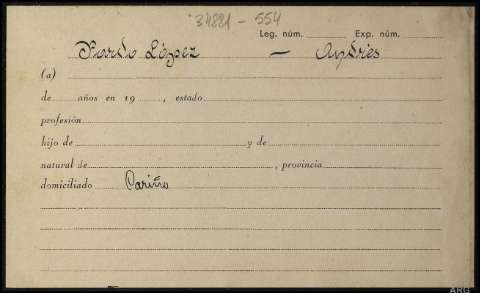 34881 - 554
Leg. núm. Exp. núm.
Pardo López — Andrés
(a)
de años en 19 , estado
profesión
hijo de y de
natural de , provincia
domiciliado Cariño
ARG